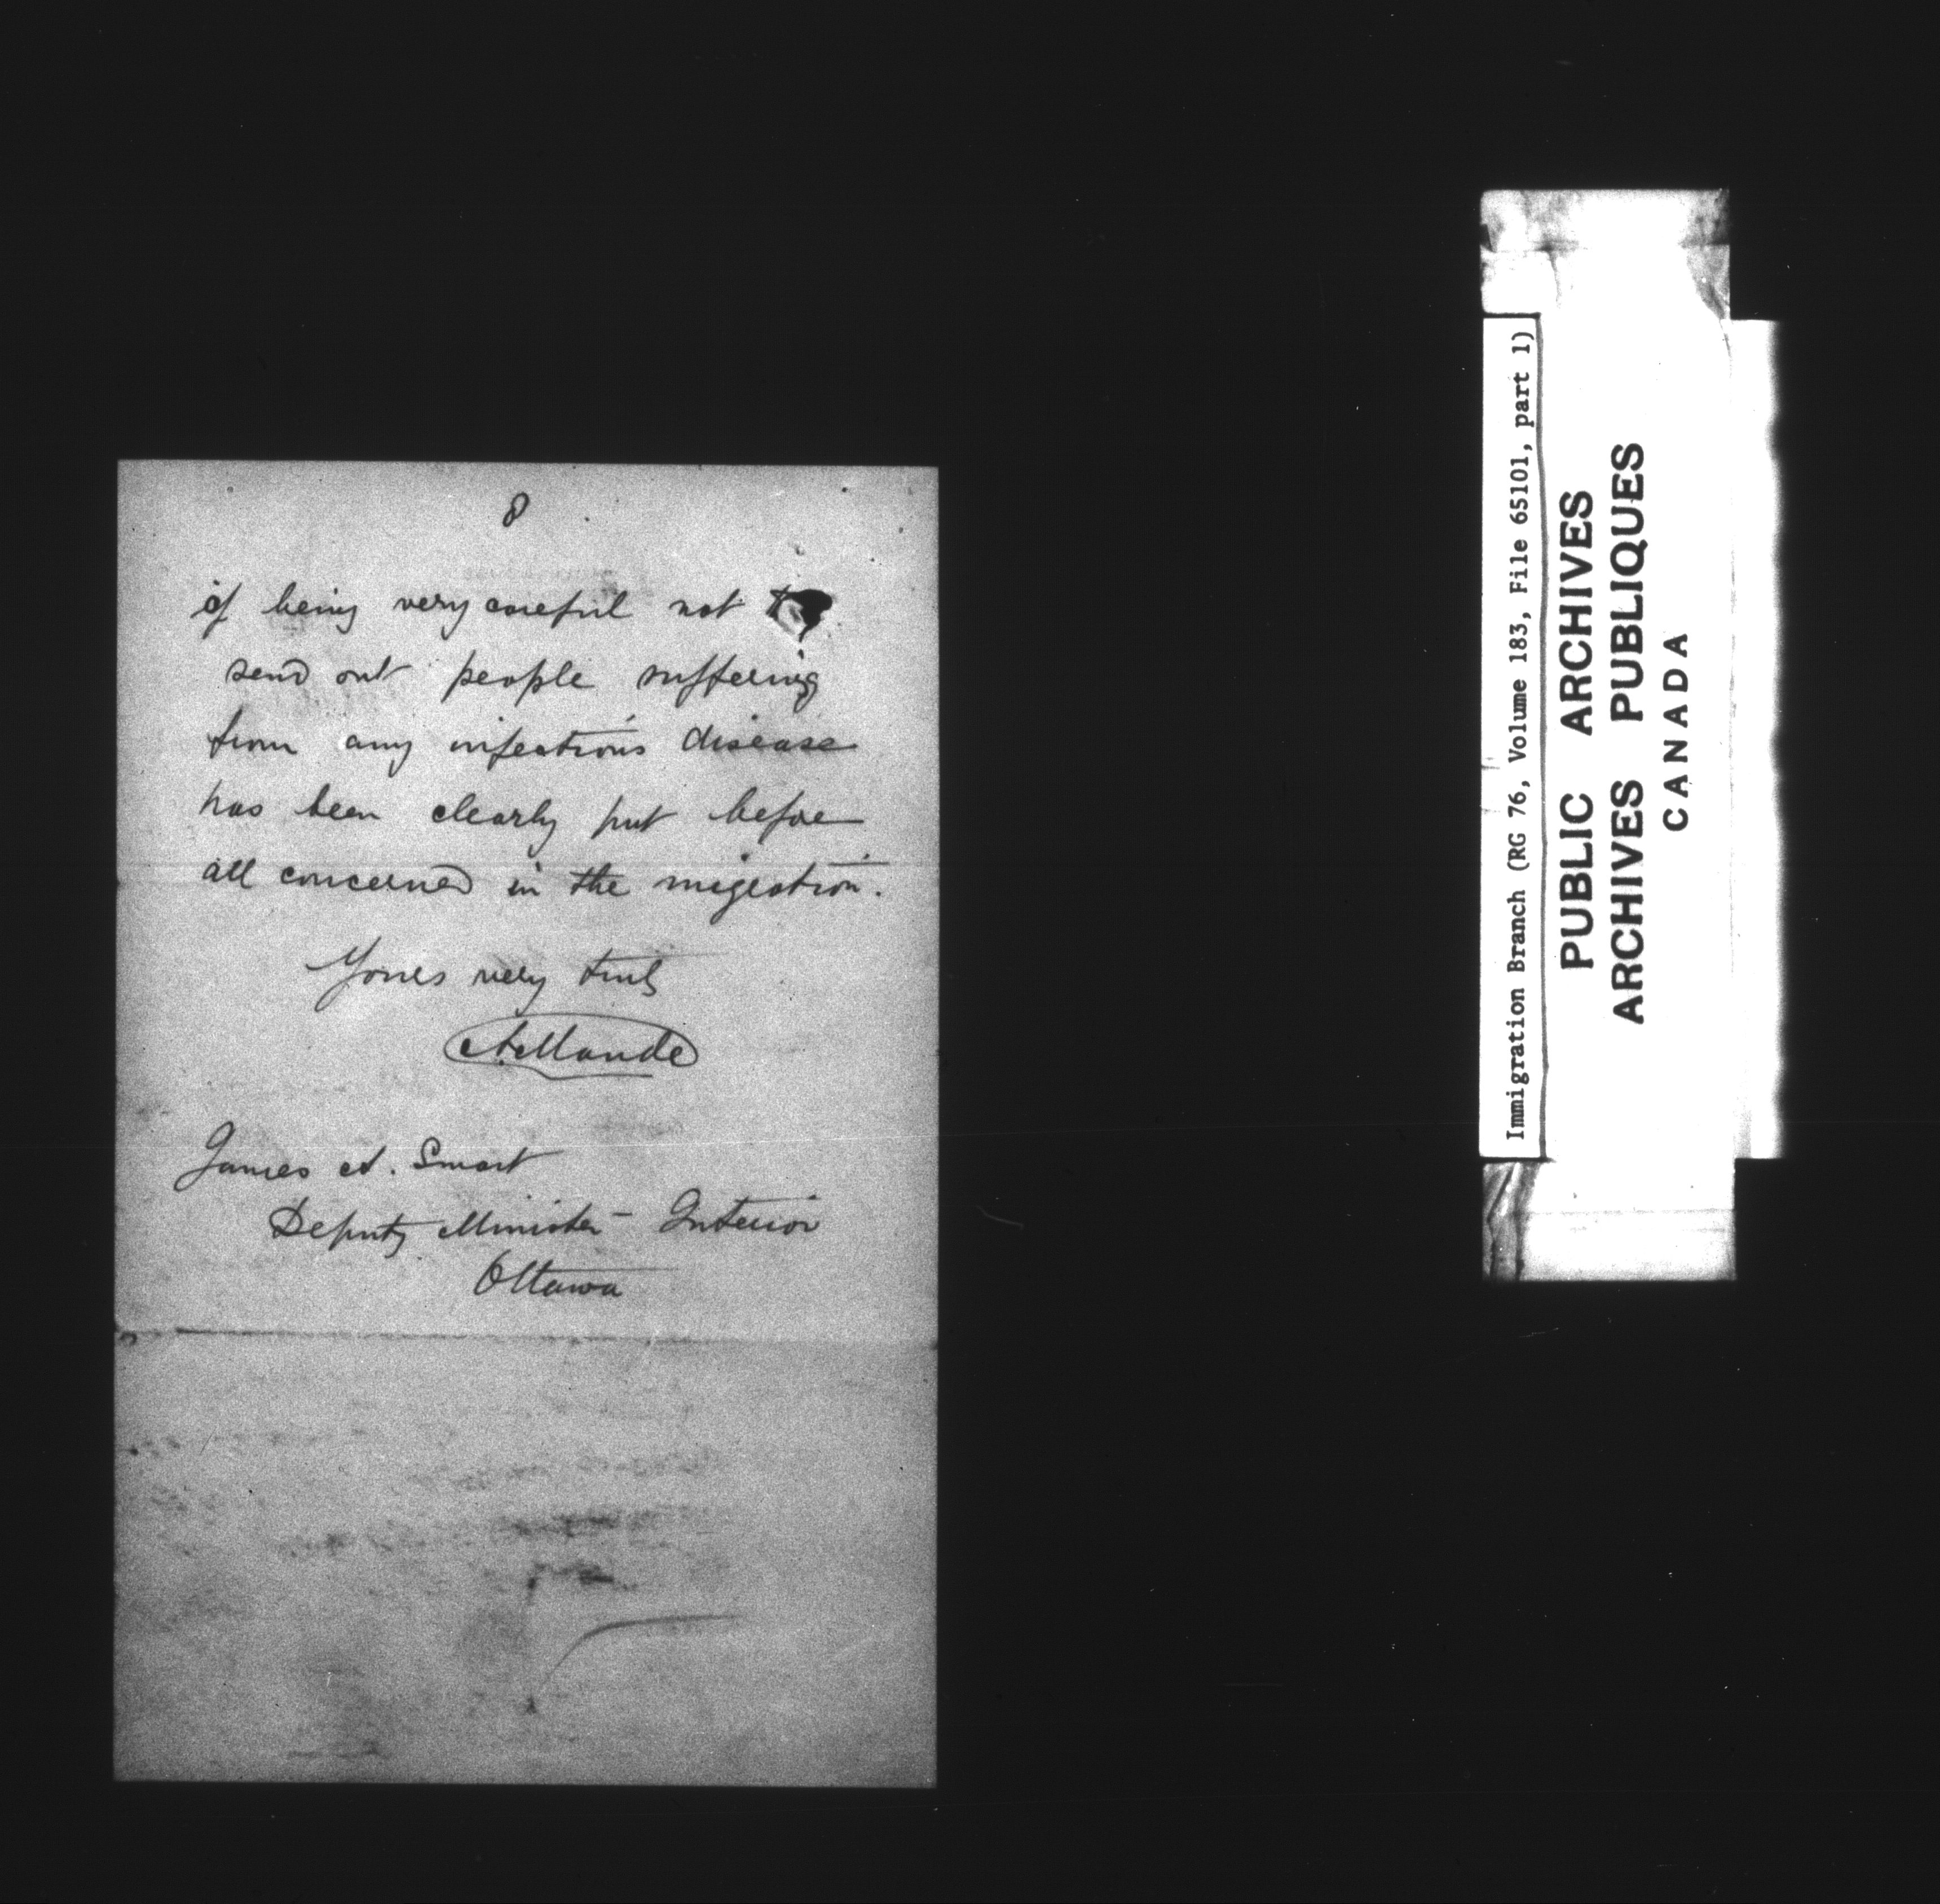 8
of being very careful not to
send out people suffering
from any infectious disease
has been clearly put before
all concerned in the migration.
Yours very truly
A Maude
James A. Smart
Deputy Minister - Interior
Ottawa
Immigration Branch (RG 76, Volume 183, File 65101, part 1)
PUBLIC ARCHIVES
ARCHIVES PUBLIQUES
CANADA